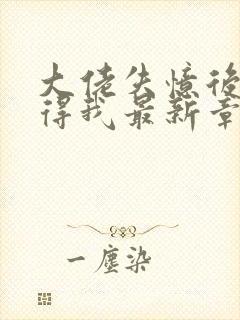 大佬失憶後
得我最新章
一塵染